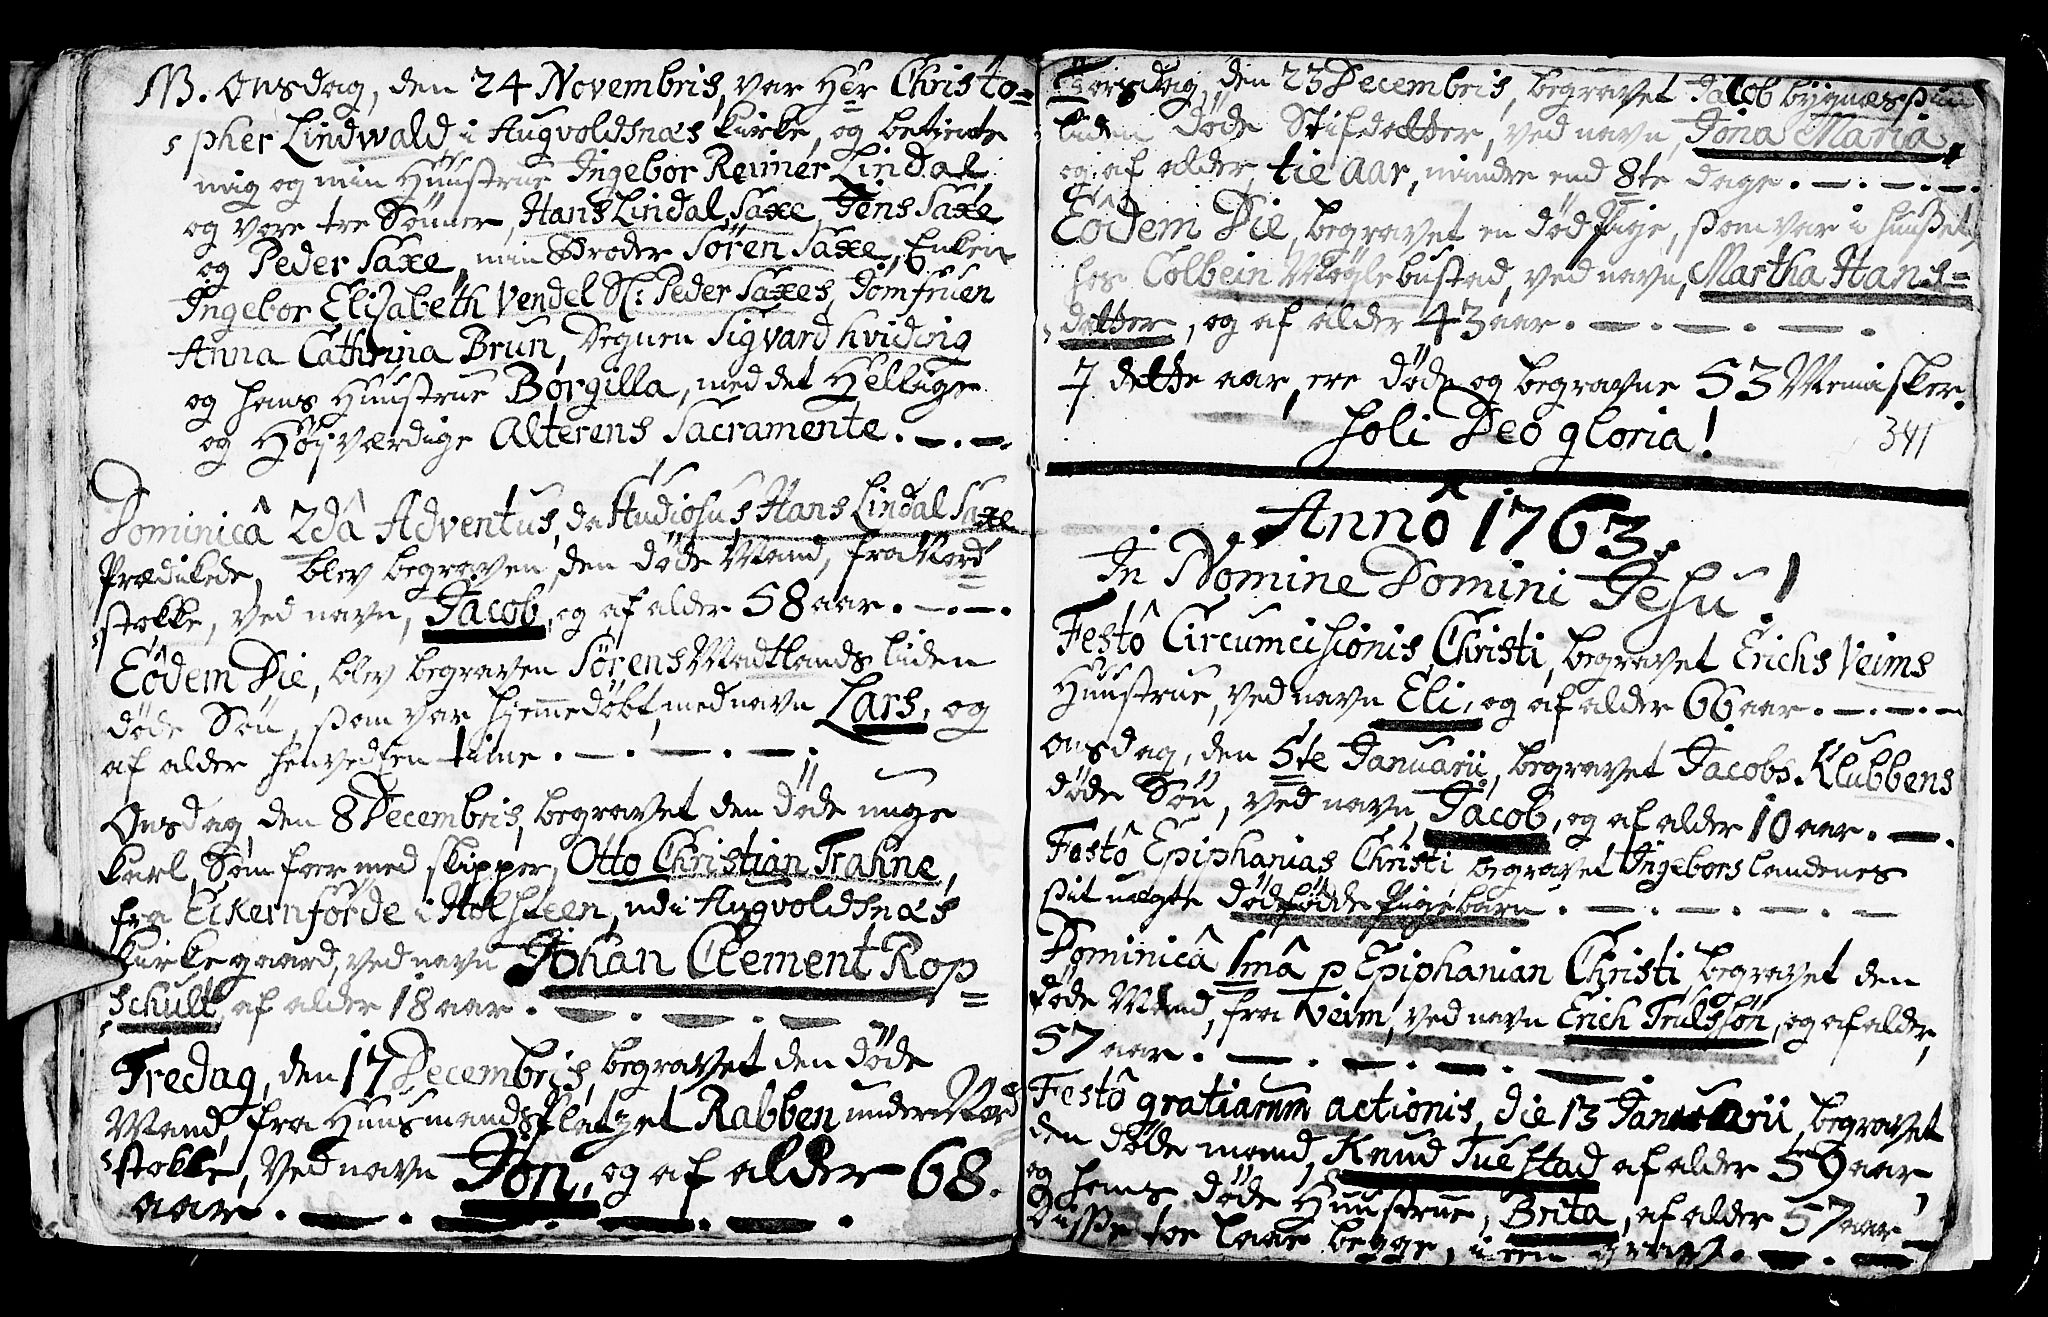 NB. Onsdag, den 24 Novembris, var Her Christo=
pher Lindwald i Augvoldsnæs kirke, og betjente
mig og min Huustrue Ingebor Reimer Lindal,
og vore tre Sønner, Hans Lindal Saxe, Jens Saxe
og Peder Saxe, min Broder Søren Saxe, Enken
Ingebor Elisabeth Vendel Sl: Peder Saxes, Jomfruen
Anna Cathrina Brun, Degnen Sigvard hviding
og hans Huustrue Børgilla, med det Hellige
og Højværdige Alterens Sacramente.
Dominicâ 2dâ Adventus, da Studiosus Hans Lindal Saxe
Prædikede, blev begraven, den døde Mand, fra Nord=
stokke, ved navn, Jacob, og af alder 58 aar.
Eôdem Die, blev begraven Sørens Madtlands liden
døde Søn, som var hjemmedøbt, med navn Lars, og
af alder henved Een time.
Onsdag, den 8 Decembris, begravet den døde unge
karl, Som foer med skipper, Otto Christian Trahne,
fra Eckernförde i Holsteen, udi Augvoldsnæs
kirkegaard, ved navn Johan Clement Rop=
schult af alder 18 aar.
Fredag, den 17 Decembris, begravet den døde
Mand, fra Huusmands Platzet Rabben under Nord
stokke, Ved navn Jon, og af alder 68.
aar.
Torsdag, den 23 Decembris, begravet Jacob bygnæs sin
liden døde Stifdatter, ved navn, Jona Maria,
og af alder, tie aar, mindre end 8te dage.
Eôdem Die, begravet en død Pige, som var i huuset,
hos Colbein Møglebustad, ved navn, Martha Hans=
datter, og af alder 43 aar.
I dette aar, ere døde og begravne 53 Mennisker.
Soli Deo gloria!
341
Annô 1763.
In Nomine Domini Jesu!
Festô Circumcisionis Christi, begravet Erichs Veims
Huustrue, ved navn Eli, og af alder 66 aar.
Onsdag, den 5te Januarii, begravet Jacobs Klubbens
døde Søn, ved navn, Jacob, og af alder 10 aar.
Festô Epiphanias Christi begravet Ingebors landenes
sit uægte dødfødde Pigebarn.
Dominicâ 1mâ p Epiphanian Christi, begravet den
døde Mand, fra Veim, ved navn Erich Trulssøn, og af alder,
57 aar.
Festô gratiarum actionis, die 13 Januarii, begravet
den døde mand, Knud Tuestad af alder 59 aar
og hans døde Huustrue, Brita, af alder 57 aar,
Disse toe laae begge, i een grav.